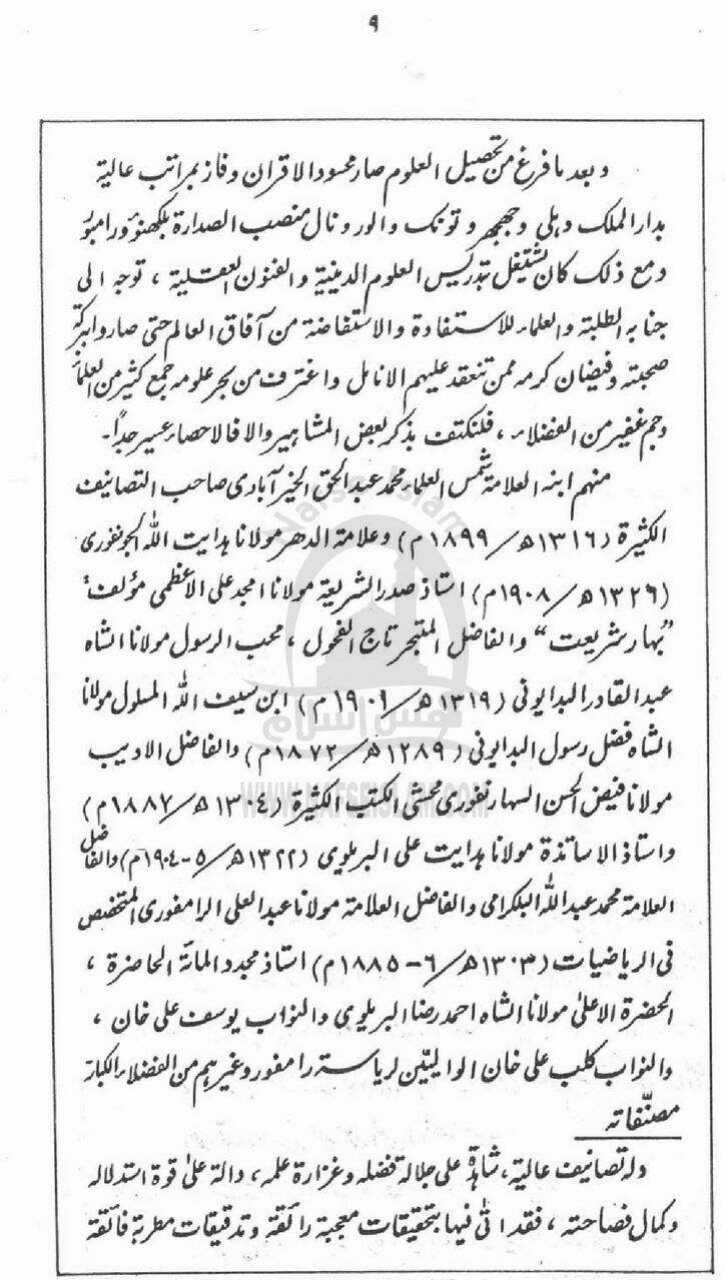 ٩
وبعد ما فرغ من تحصيل العلوم صار محسود الاقران وفاز بمراتب عالية
بدار الملك دہلی وجهجهر و تونك والور ونال منصب الصدارة بلكهنؤ ورامبور
ومع ذلك كان يشتغل بتدريس العلوم الدينية والفنون العقلية ، توجه الى
جنابه الطلبة والعلماء للاستفادة والاستفاضة من آفاق العالم حتى صاروا ببركة
صحبته وفيضان كرمه ممن تنعقد عليهم الانامل واغترف من بحر علومه جمع كثير من العلماء
وجم غفير من الفضلاء ، فلنكتف بذكر بعض المشاهير والا فالاحصار عسير جداً۔
منهم ابنه العلامة شمس العلماء محمد عبد الحق الخير آبادى صاحب التصانيف
الكثيرة (١٣١٦ھ/١٨٩٩م) وعلامة الدهر مولانا ہدايت اللہ الجونفورى
(١٣٢٦ھ/١٩٠٨م) استاذ صدر الشريعة مولانا امجد على الاعظمى مؤلف
"بہار شریعت" والفاضل المتبحر تاج الفحول ، محب الرسول مولانا الشاه
عبد القادر البدايونى (١٣١٩ھ/١٩٠١م) ابن سيف اللہ المسلول مولانا
الشاه فضل رسول البدايونى (١٢٨٩ھ/١٨٧٢م) والفاضل الاديب
مولانا فيض الحسن السہارنفورى محشى الكتب الكثيرة (١٣٠٤ھ/١٨٨٧م)
واستاذ الاساتذة مولانا ہدايت على البريلوى (١٣٢٢ھ/٥-١٩٠٤م) والفاضل
العلامة محمد عبد اللہ البلكرامى والفاضل العلامة مولانا عبد العلى الرامفورى المتخصص
فى الرياضيات (١٣٠٣ھ/٦-١٨٨٥م) استاذ مجدد المائة الحاضرة ،
الحضرة الاعلى مولانا الشاه احمد رضا البريلوى والنواب يوسف على خان ،
والنواب كلب على خان الواليين لرياسة رامفور وغيرہم من الفضلاء الكبار
مصنّفاته
وله تصانيف عالية ، شاہدة على جلالة فضله وغزارة علمه ، دالة على قوة استدلاله
وكمال فصاحته ، فقد اتى فيها بتحقيقات معجبة رائقة وتدقيقات مطربة فائقة
Nafse Islam
نفس اسلام
WWW.NAFSEISLAM.COM